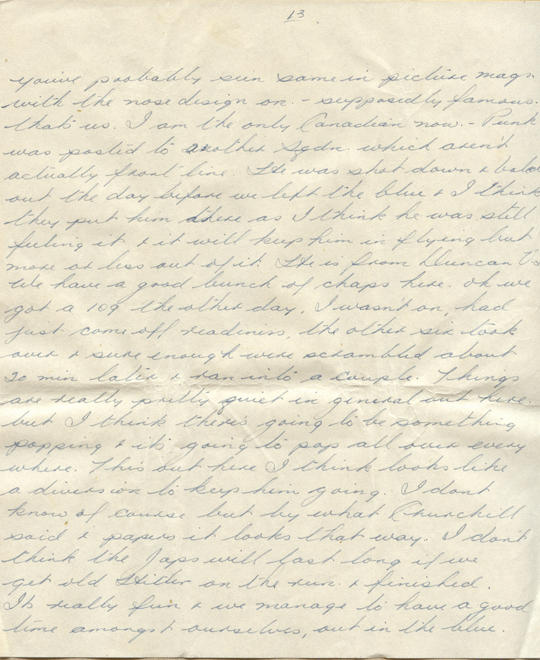 13
youve probably seen some in picture mags
with the nose design on. - supposedly famous.
that's us. I am the only Canadian now. - Punk
was posted to another Sqdn. which aren't
actually front line. He was shot down & baled
out the day before we left the blue & I think
they put him there as I think he was still
feeling it & it will keep him in flying but
more or less out of it. He is from Duncan
We have a good bunch of chaps here. oh we
got a 109 the other day. I wasn't on, had
just come off readiness, the other six took
over & sure enough were scrambled about
20 min later & ran into a couple. Things
are really pretty quiet in general out here.
but I think there's going to be something
popping & it's going to pop all over every
where. This out here I think looks like
a diversion to keep him going. I dont
know of course but by what Churchill
said & papers it looks that way. I don't
think the Japs will last long if we
get old Hitler on the run & finished.
Its really fun & we manage to have a good
time amongst ourselves, out in the blue.